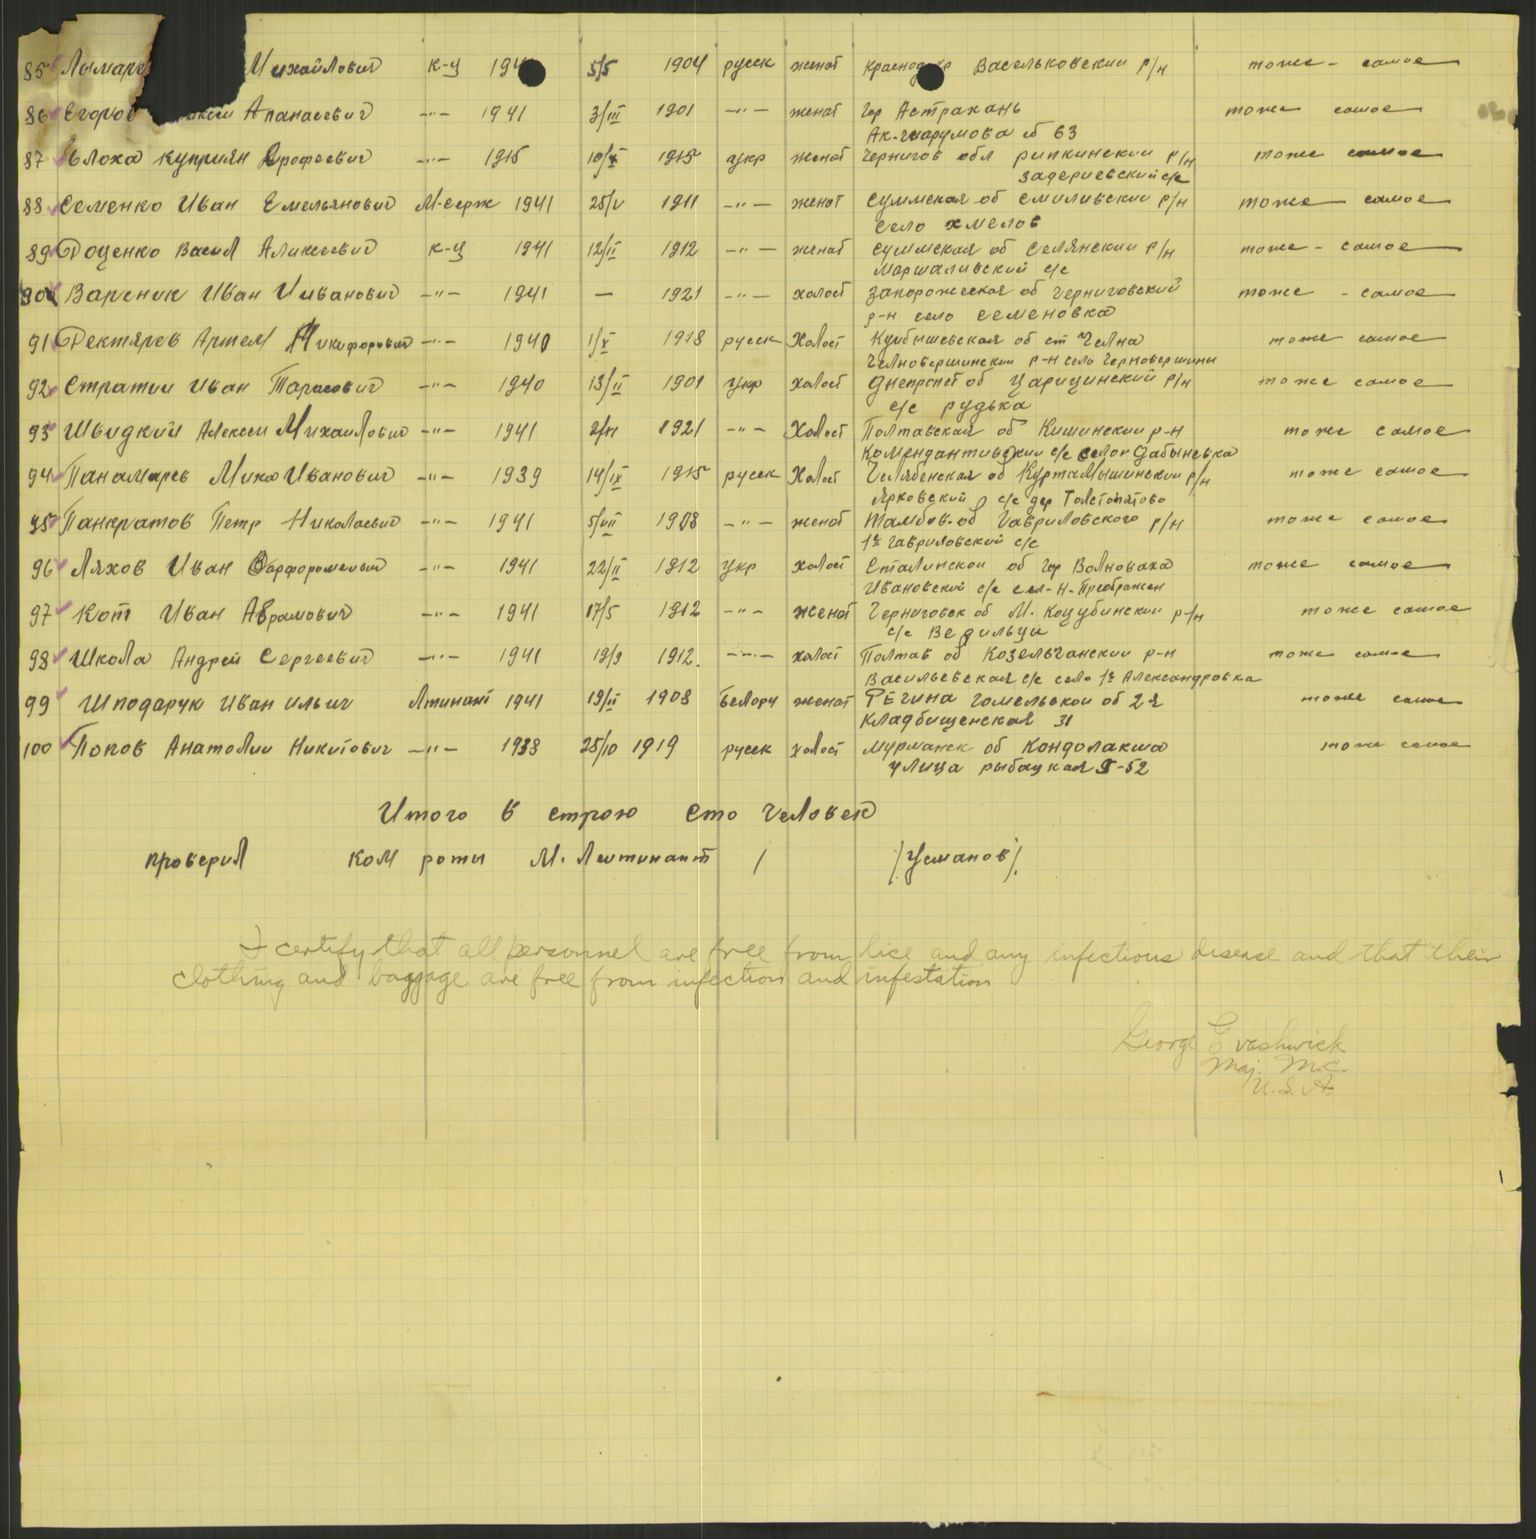 85 Лымаре Михайлович к-ц 194 5/5 1904 русск женат Краснод р Васельковский р/н тоже - самое
86 Егоров Апанасевич -"- 1941 3/III 1901 -"- женат гор Астрахань тоже самое
63
87 Блоха Куприян Ерофеевич -"- 1915 10/X 1915 укр женат Чернигов обл рипкинский р/н тоже самое
задериевский с/с
88 Семенко Иван Емельянович М-серж 1941 25/V 1911 -"- женат Суммская об Смиливский р/н тоже самое
село Хмелов
89 Доценко Васил Аликсеевич к-ц 1941 12/II 1912 -"- женат суммская об Селянский р/н тоже - самое
маршаливский с/с
90 Вареник Иван Ииванович -"- 1941 — 1921 -"- холост запорожеская об Черниговский тоже - самое
р-н село Семеновка
91 Дектярев Артем Никифорович -"- 1940 1/X 1918 русск Холост Куйбышевская об ст Челна тоже самое
Челновершинский р-н село Черновершины
92 Стратии Иван Тарасович -"- 1940 13/II 1901 укр холост Днепропет об Царицинский р/н тоже самое
с/с рудька
93 Швидкий Алексей Михаилович -"- 1941 2/IV 1921 -"- Холост Полтавская об Кишинский р-н тоже самое
с/с
94 Панамарев Миха Иванович -"- 1939 14/IX 1915 русск Холост Челябенская об Куртамышинский р/н тоже самое
Ярковский с/с дер Толстопятово
95 Панкратов Петр Николаевич -"- 1941 5/VII 1908 -"- женат Тамбов-об Гавриловского р/н тоже самое
1й Гавриловский с/с
96 Ляхов Иван -"- 1941 22/II 1912 укр холост Сталинской об гор Волноваха тоже самое
Ивановский с/с сел-Н-Преображен
97 Кот Иван Аврамович -"- 1941 17/5 1912 -"- женат Черниговск об М. Коцубинский р-н тоже самое
с/с Ведильци
98 Школа Андрей Сергеевич -"- 1941 19/9 1912 -"- холост Полтав об Козельчанский р-н тоже самое
Васильевская с/с село 1я Александровка
99 Шподарук Иван Ильич Лтинант 1941 19/II 1908 Белору женат РЕчица гомельской об 2я тоже самое
Кладбищенская 31
100 Попов Анатолий Никитович -"- 1938 25/10 1919 русск холост Мурманск об Кондолакша тоже самое
улица рыбацкая 52
Итого в строю сто человек
проверил ком роты М. Леитинант / /Усманов/.
I certify that all personnel are free from lice and any infectious disease and that their
clothing and baggage are free from infection and infestation
George Evashwick
Maj. M.C.
U.S.A.